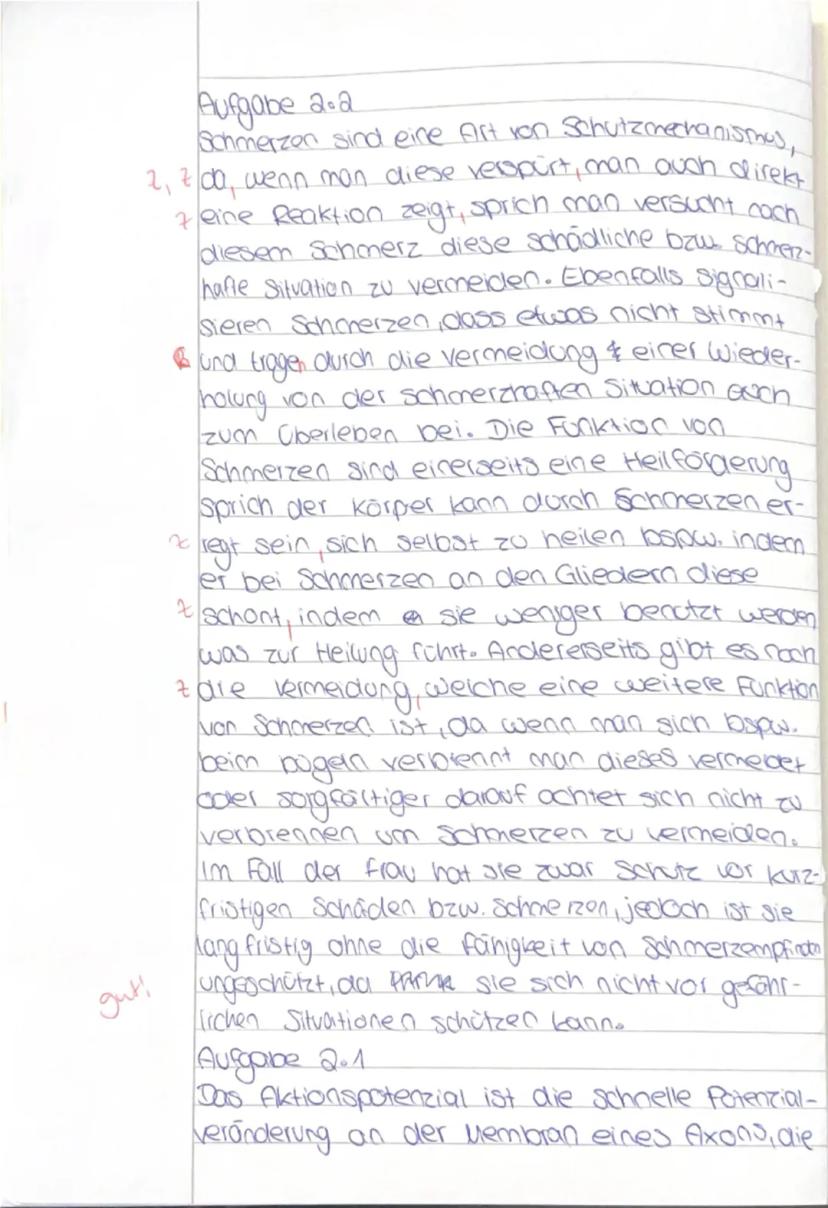 Aufgabe 2.2
Schmerzen sind eine Art von Schutzmechanismus,
z, z da, wenn man diese verspürt, man auch direkt
z eine Reaktion zeigt, sprich man versucht nach
diesem Schmerz diese schädliche bzw. schmerz-
hafte Situation zu vermeiden. Ebenfalls signali-
sieren Schmerzen, dass etwas nicht stimmt
und tragen durch die Vermeidung einer Wieder-
holung von der schmerzhaften Situation auch
zum Überleben bei. Die Funktion von
Schmerzen sind einerseits eine Heilförderung
sprich der Körper kann durch Schmerzen er-
z regt sein, sich selbst zu heilen bspw. indem
er bei Schmerzen an den Gliedern diese
z schont, indem sie weniger benutzt werden
was zur Heilung führt. Andererseits gibt es noch
z die Vermeidung, welche eine weitere Funktion
von Schmerzen ist, da wenn man sich bspw.
beim bügeln verbrennt man dieses vermeidet
oder sorgfältiger darauf achtet sich nicht zu
verbrennen um Schmerzen zu vermeiden.
Im Fall der Frau hat sie zwar Schutz vor kurz-
fristigen Schäden bzw. Schmerzen, jedoch ist sie
langfristig ohne die Fähigkeit von Schmerzempfinden
ungeschützt, da sie sich nicht vor gefähr-
gut! lichen Situationen schützen kann.
Aufgabe 2.1
Das Aktionspotenzial ist die schnelle Potenzial-
veränderung an der Membran eines Axons, die